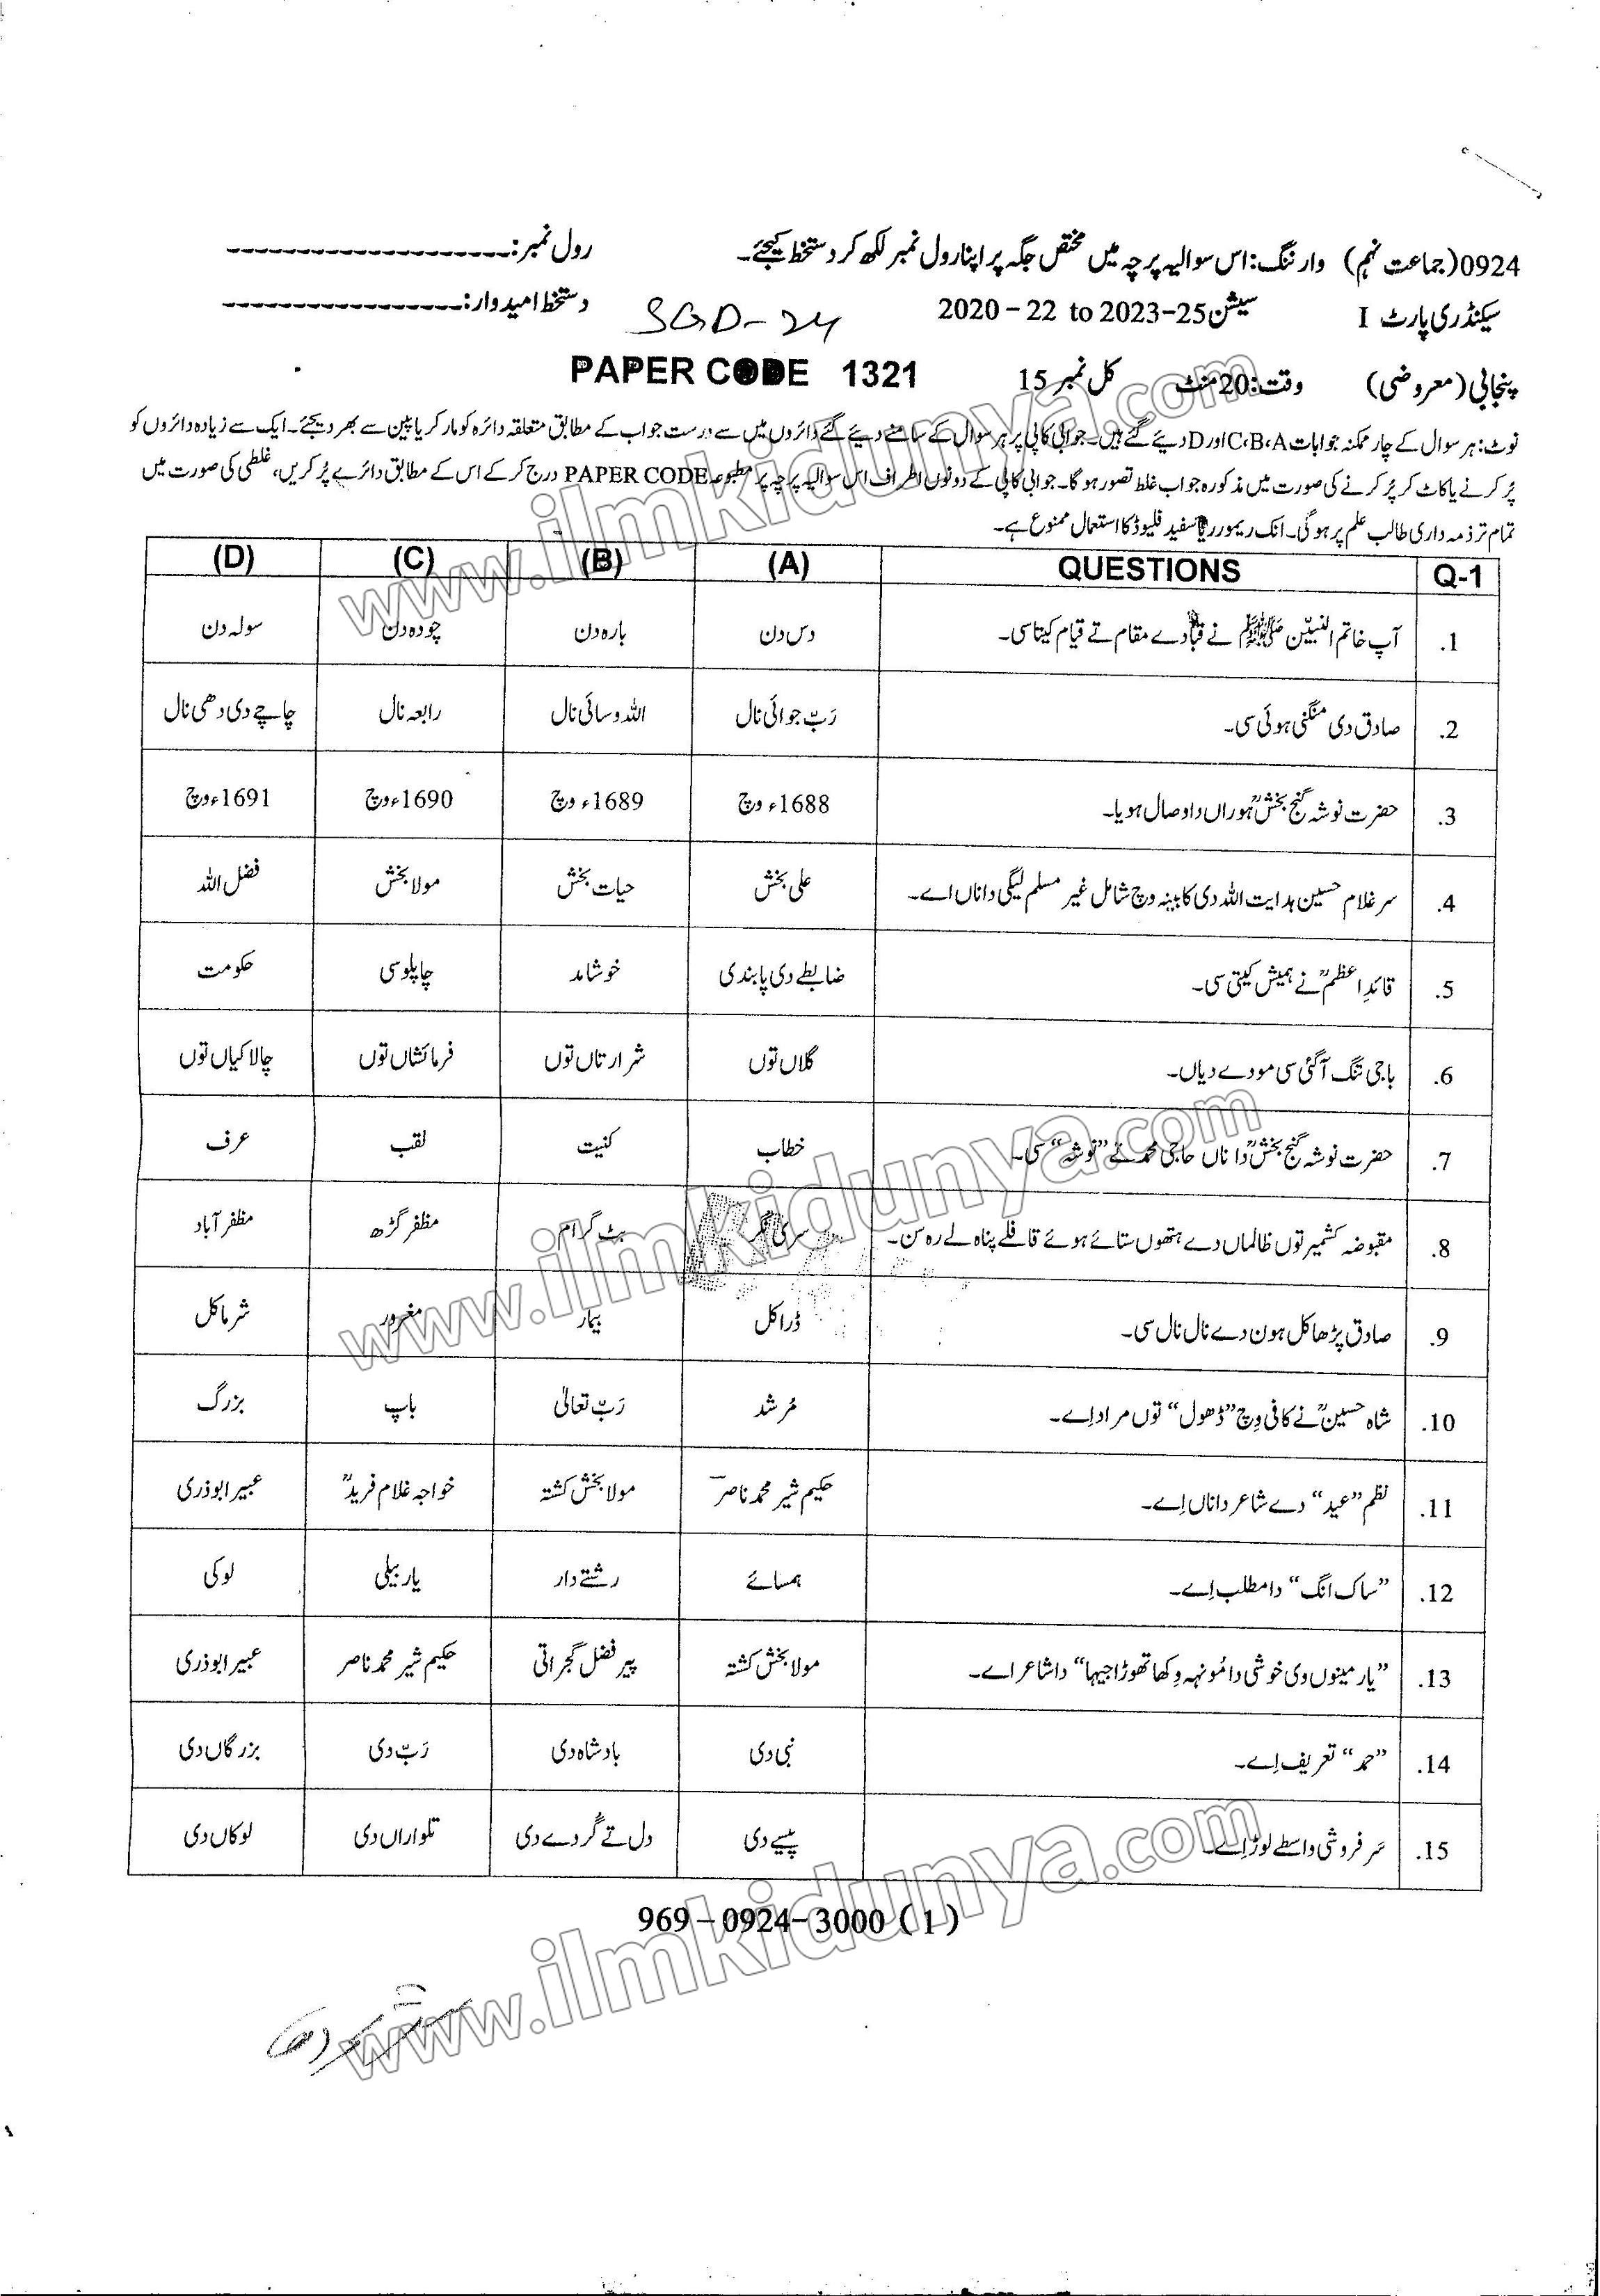 0924(جماعت نہم) وارننگ: اس سوالیہ پرچہ میں مختص جگہ پر اپنا رول نمبر لکھ کر دستخط کیجئے۔ رول نمبر:
سیکنڈری پارٹ I سیشن 2020 – 22 to 2023-25 SGD-24 دستخط امیدوار:
پنجابی (معروضی) وقت: 20 منٹ کل نمبر 15 PAPER CODE 1321
نوٹ: ہر سوال کے چار ممکنہ جوابات A،B،C اور D دیئے گئے ہیں۔ جوابی کاپی پر ہر سوال کے سامنے دیئے گئے دائروں میں سے درست جواب کے مطابق متعلقہ دائرہ کو مارکر یا پین سے بھر دیجئے۔ ایک سے زیادہ دائروں کو
پُر کرنے یا کاٹ کر پُر کرنے کی صورت میں مذکورہ جواب غلط تصور ہو گا۔ جوابی کاپی کے دونوں اطراف اس سوالیہ پرچہ پر مطبوعہ PAPER CODE درج کر کے اس کے مطابق دائرے پُر کریں، غلطی کی صورت میں
تمام تر ذمہ داری طالب علم پر ہو گی۔ انک ریموور یا سفید فلیوڈ کا استعمال ممنوع ہے۔
Q-1 QUESTIONS (A) (B) (C) (D)
1. آپ خاتم النبیّین ﷺ نے قباء دے مقام تے قیام کیتا سی۔ دس دن بارہ دن چودہ دن سولہ دن
2. صادق دی منگنی ہوئی سی۔ رَبّ جوائی نال اللہ وسائی نال رابعہ نال چاچے دی دھی نال
3. حضرت نوشہ گنج بخشؒ ہوراں دا وصال ہویا۔ 1688ء وچ 1689ء وچ 1690ء وچ 1691ء وچ
4. سر غلام حسین ہدایت اللہ دی کابینہ وچ شامل غیر مسلم لیگی دا ناں اے۔ علی بخش حیات بخش مولا بخش فضل اللہ
5. قائدِ اعظمؒ نے ہمیش کیتی سی۔ ضابطے دی پابندی خوشامد چاپلوسی حکومت
6. باجی تنگ آ گئی سی مودے دیاں۔ گلاں توں شرارتاں توں فرمائشاں توں چالاکیاں توں
7. حضرت نوشہ گنج بخشؒ دا ناں حاجی محمد تے ”نوشہ“ سی۔ خطاب کنیت لقب عرف
8. مقبوضہ کشمیر توں ظالماں دے ہتھوں ستائے ہوئے قافلے پناہ لے رہ سن۔ سری نگر بٹ گرام مظفر گڑھ مظفر آباد
9. صادق پڑھاکل ہون دے نال نال سی۔ ڈراکل بیمار مغرور شرماکل
10. شاہ حسینؒ نے کافی وچ ”ڈھول“ توں مراد اِے۔ مُرشد رَبّ تعالیٰ باپ بزرگ
11. نظم ”عید“ دے شاعر دا ناں اِے۔ حکیم شیر محمد ناصرؔ مولا بخش کشتہ خواجہ غلام فریدؒ عبیر ابوذری
12. ”ساک انگ“ دا مطلب اِے۔ ہمسائے رشتے دار یار بیلی لوکی
13. ”یار مینوں وی خوشی دا مُونہہ وِکھا تھوڑا جیہا“ دا شاعر اے۔ مولا بخش کشتہ پیر فضل گجراتی حکیم شیر محمد ناصر عبیر ابوذری
14. ”حمد“ تعریف اِے۔ نبی دی بادشاہ دی رَبّ دی بزرگاں دی
15. سَرفروشی واسطے لوڑ اِے۔ پیسے دی دل تے گُردے دی تلواراں دی لوکاں دی
969 – 0924 – 3000 ( 1 )
www.ilmkidunya.com
www.ilmkidunya.com
www.ilmkidunya.com